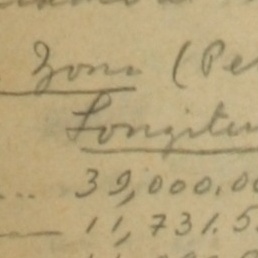 Zone (Pe
Longitu
39,000.00
11,731.5